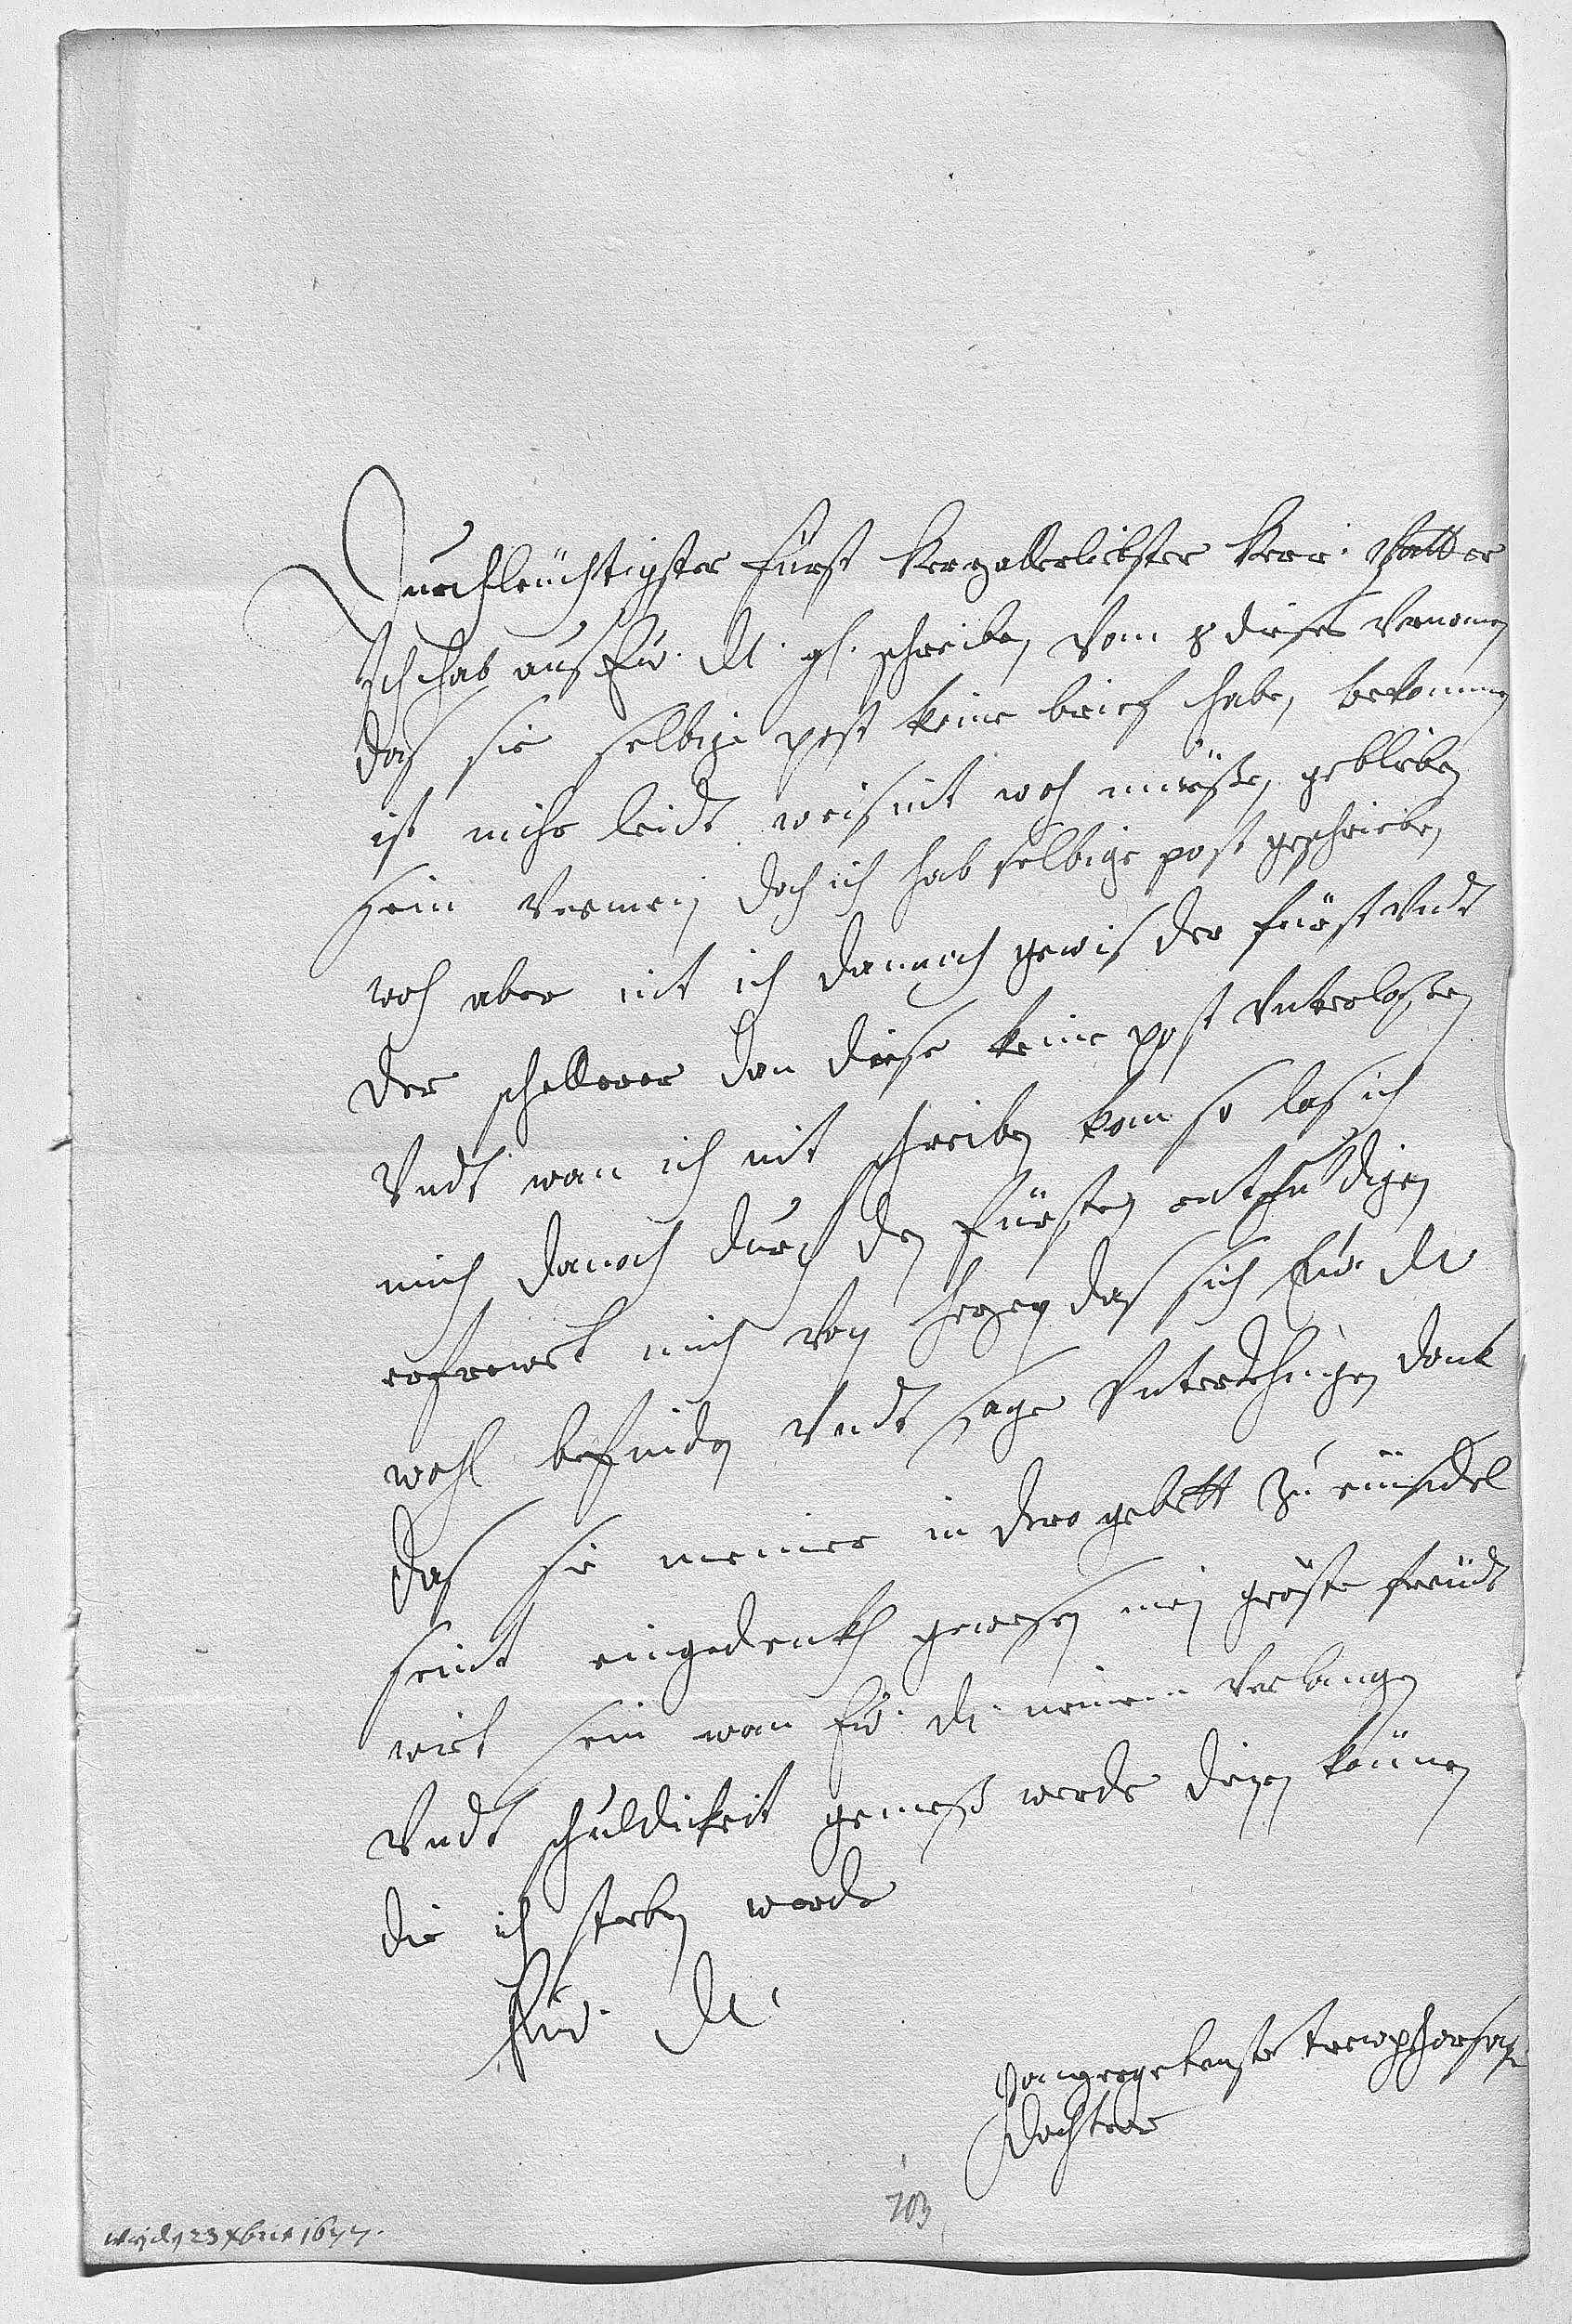 Durchleuchtigster Fürst herzallerliebster herr: Vatter
Ich hab aus Eu: Dl: gh: schreiben, vom 8 dieses vernomen
das sie selbige post keine brief haben, bekommen
ist mihr leidt weis nit wo müesten gebliben
sein vermein doch ich hab selbige post geschrieben
wo aber nit ich dannach gewis der fürst undt
der dan diese keine post unterlassen
Undt wan ich nit schreiben kan so las ich
mich danoch durch den Fürsten entschuldigen
erfrewet mich von herzen das sich Eu: Dl
wohl befinden undt sage untertehnigen dank
das sie meiner in dero gebett zu einsidel
seint eingedenkh gewesen mein gröste freudt
wirt sein wan Eu: Dl: meinem verlangen
Undt schuldickeit gemeß werde dienen können
die ich sterben werde
Eu: Dl:
gehorsame
Dochter
23 xbris 1677.
203